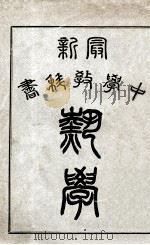 最新
中學教科書
熱學